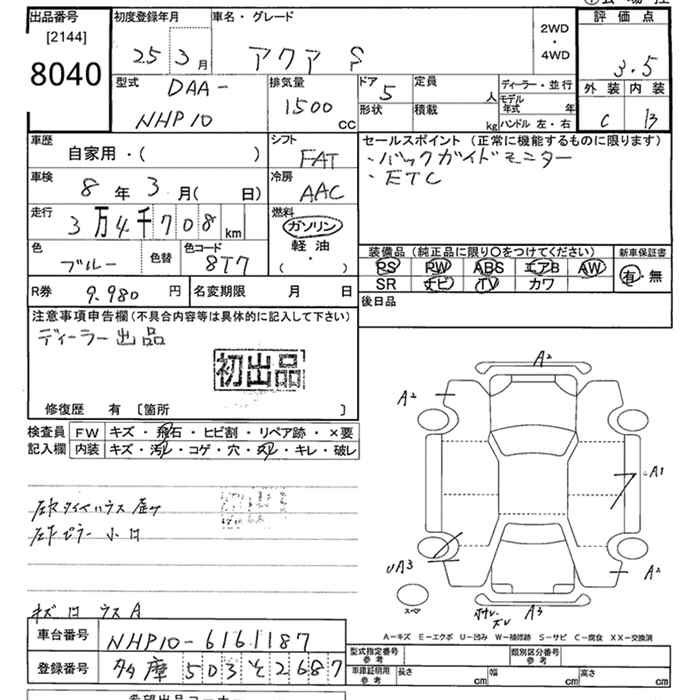 出品番号 初度登録年月 車名・グレード 評価点
[2144] 25年3月 アクア S 2WD・4WD 3.5
8040
型式 DAA- 排気量 ドア 5 定員 人 ディーラー・並行 外装 内装
NHP10 1500cc 形状 積載 kg モデル年式 年 C B
ハンドル 左・右
車歴 自家用・( ) シフト FAT セールスポイント (正常に機能するものに限ります)
・バックガイドモニター
・ETC
車検 8年3月( 日) 冷房 AAC
走行 3万4千708km 燃料 ガソリン
軽油
( ・ )
色 ブルー 色替 色コード 8T7
装備品 (純正品に限り〇をつけてください) 新車保証書
PS PW ABS エアB AW 有・無
SR ナビ TV カワ
R券 9,980円 名変期限 月 日 後日品
注意事項申告欄 (不具合内容等は具体的に記入して下さい)
ディーラー出品
初出品
修復歴 有 [箇所 ]
検査員 FW キズ・飛石・ヒビ割・リペア跡・×要
記入欄 内装 キズ・汚れ・コゲ・穴・スレ・キレ・破レ
A2
A2
A1
UA3
A2
A3
スペア
小凹
A
A-キズ E-エクボ U-凹み W-補修跡 S-サビ C-腐食 XX-交換済
車台番号 NHP10-6161187
型式指定番号 参考 類別区分番号 参考
登録番号 多摩503 そ2687
車庫証明用 参考 長さ cm 幅 cm 高さ cm